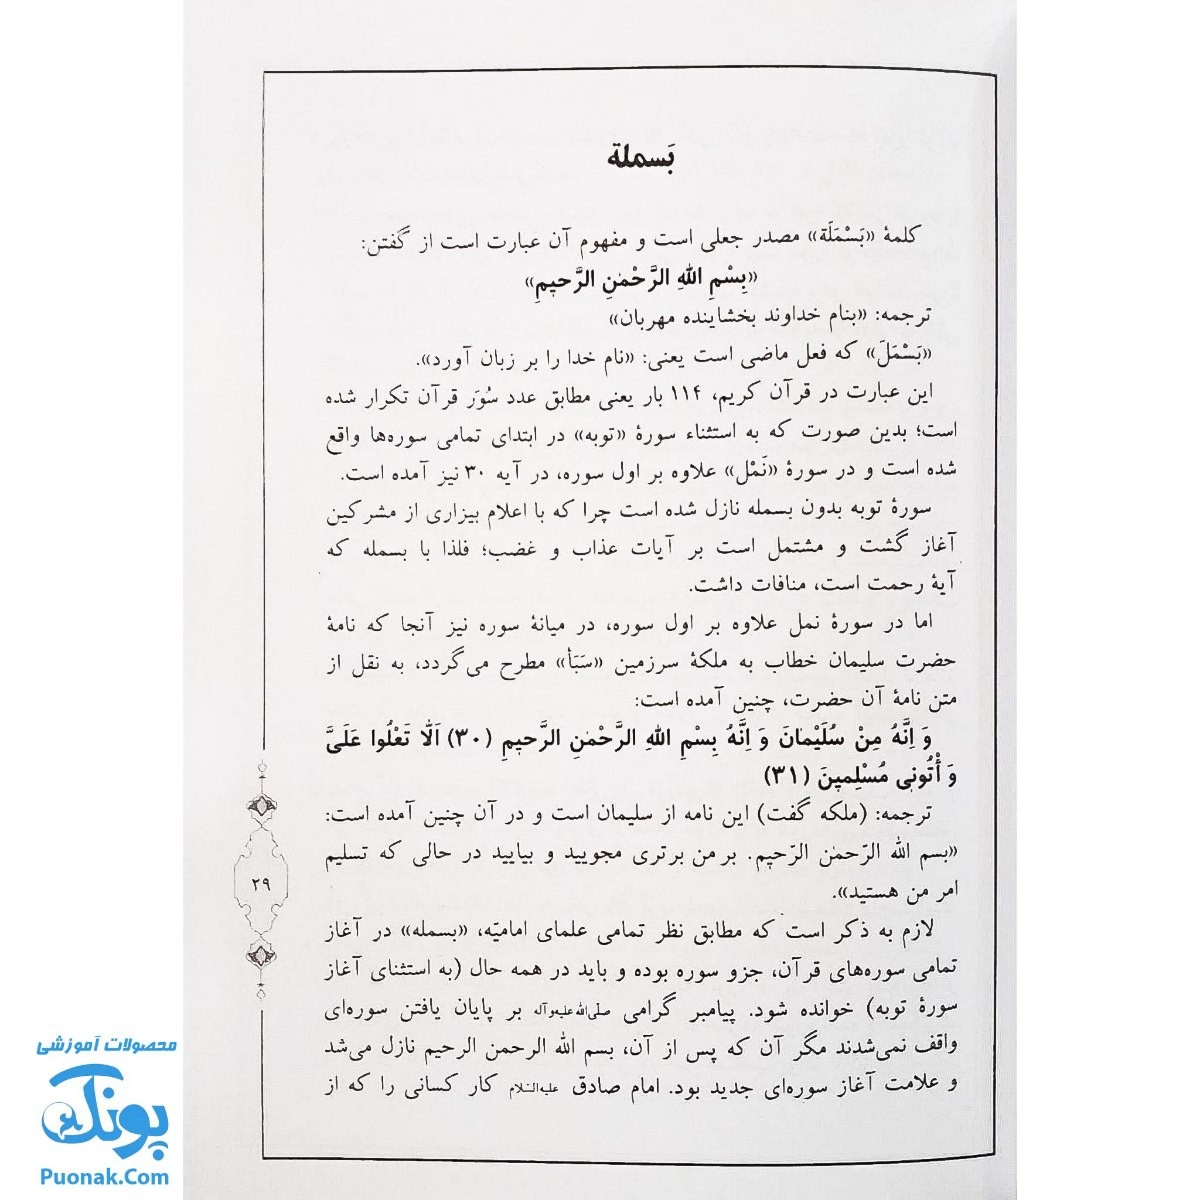 بَسملة
کلمهٔ «بَسْمَلَة» مصدر جعلی است و مفهوم آن عبارت است از گفتن:
«بِسْمِ اللهِ الرَّحْمٰنِ الرَّحیمِ»
ترجمه: «بنام خداوند بخشاینده مهربان»
«بَسْمَلَ» که فعل ماضی است یعنی: «نام خدا را بر زبان آورد».
این عبارت در قرآن کریم، ۱۱۴ بار یعنی مطابق عدد سُوَر قرآن تکرار شده
است؛ بدین صورت که به استثناء سورهٔ «توبه» در ابتدای تمامی سوره‌ها واقع
شده است و در سورهٔ «نَمْل» علاوه بر اول سوره، در آیه ۳۰ نیز آمده است.
سورهٔ توبه بدون بسمله نازل شده است چرا که با اعلام بیزاری از مشرکین
آغاز گشت و مشتمل است بر آیات عذاب و غضب؛ فلذا با بسمله که
آیهٔ رحمت است، منافات داشت.
اما در سورهٔ نمل علاوه بر اول سوره، در میانهٔ سوره نیز آنجا که نامهٔ
حضرت سلیمان خطاب به ملکهٔ سرزمین «سَبَأ» مطرح می‌گردد، به نقل از
متن نامهٔ آن حضرت، چنین آمده است:
وَ اِنَّهُ مِنْ سُلَیْمٰانَ وَ اِنَّهُ بِسْمِ اللهِ الرَّحْمٰنِ الرَّحیمِ (۳۰) اَلّٰا تَعْلُوا عَلَیَّ
وَ أْتُونی مُسْلِمینَ (۳۱)
ترجمه: (ملکه گفت) این نامه از سلیمان است و در آن چنین آمده است:
«بسم الله الرّحمٰن الرّحیم. بر من برتری مجویید و بیایید در حالی که تسلیم
امر من هستید».
لازم به ذکر است که مطابق نظر تمامی علمای امامیّه، «بسمله» در آغاز
تمامی سوره‌های قرآن، جزو سوره بوده و باید در همه حال (به استثنای آغاز
سورهٔ توبه) خوانده شود. پیامبر گرامی صلی‌الله‌علیه‌وآله بر پایان یافتن سوره‌ای
واقف نمی‌شدند مگر آن که پس از آن، بسم الله الرحمن الرحیم نازل می‌شد
و علامت آغاز سوره‌ای جدید بود. امام صادق علیه‌السلام کار کسانی را که از
۲۹
محصولات آموزشی
پونک
Puonak.Com